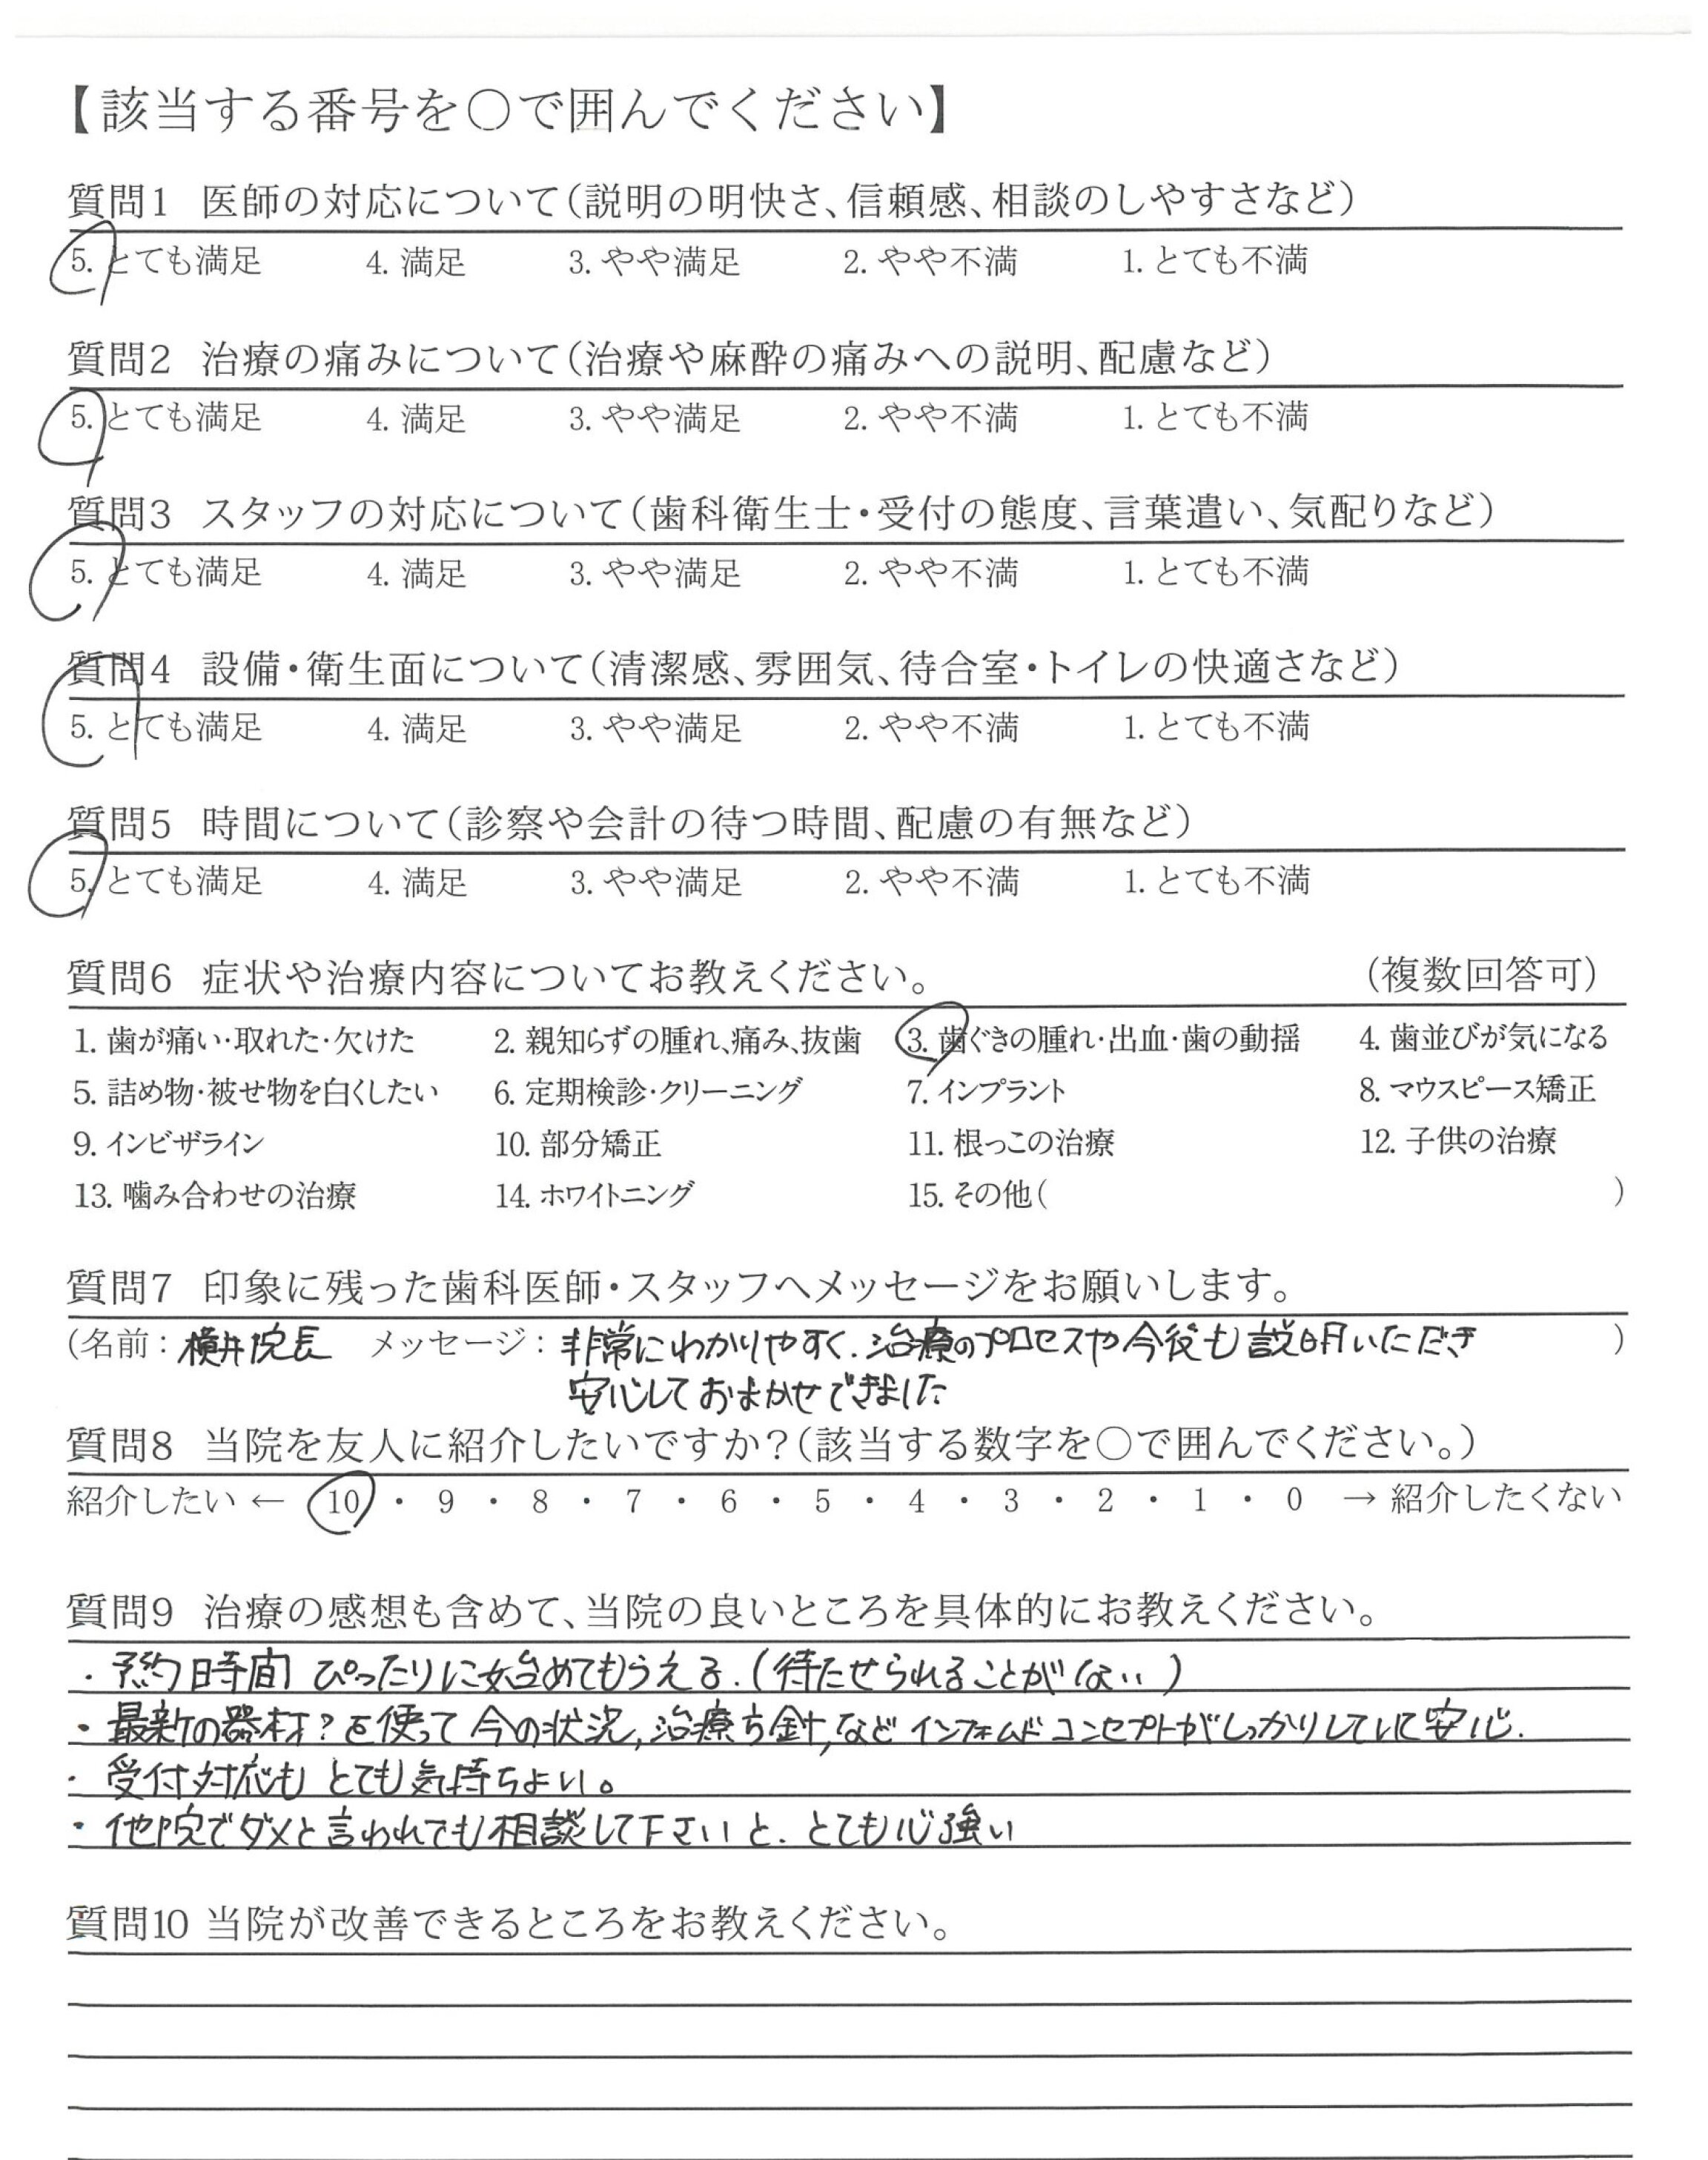 【該当する番号を○で囲んでください】
質問1 医師の対応について(説明の明快さ、信頼感、相談のしやすさなど)
5. とても満足 4. 満足 3. やや満足 2. やや不満 1. とても不満
質問2 治療の痛みについて(治療や麻酔の痛みへの説明、配慮など)
5. とても満足 4. 満足 3. やや満足 2. やや不満 1. とても不満
質問3 スタッフの対応について(歯科衛生士・受付の態度、言葉遣い、気配りなど)
5. とても満足 4. 満足 3. やや満足 2. やや不満 1. とても不満
質問4 設備・衛生面について(清潔感、雰囲気、待合室・トイレの快適さなど)
5. とても満足 4. 満足 3. やや満足 2. やや不満 1. とても不満
質問5 時間について(診察や会計の待つ時間、配慮の有無など)
5. とても満足 4. 満足 3. やや満足 2. やや不満 1. とても不満
質問6 症状や治療内容についてお教えください。 (複数回答可)
1. 歯が痛い・取れた・欠けた 2. 親知らずの腫れ、痛み、抜歯 3. 歯ぐきの腫れ・出血・歯の動揺 4. 歯並びが気になる
5. 詰め物・被せ物を白くしたい 6. 定期検診・クリーニング 7. インプラント 8. マウスピース矯正
9. インビザライン 10. 部分矯正 11. 根っこの治療 12. 子供の治療
13. 噛み合わせの治療 14. ホワイトニング 15. その他( )
質問7 印象に残った歯科医師・スタッフへメッセージをお願いします。
(名前：横井院長 メッセージ：非常にわかりやすく、治療のプロセスや今後も説明いただき )
安心しておまかせできました
質問8 当院を友人に紹介したいですか？(該当する数字を○で囲んでください。)
紹介したい ← 10 ・ 9 ・ 8 ・ 7 ・ 6 ・ 5 ・ 4 ・ 3 ・ 2 ・ 1 ・ 0 → 紹介したくない
質問9 治療の感想も含めて、当院の良いところを具体的にお教えください。
・予約時間ぴったりに始めてもらえる.(待たせられることがない)
・最新の器材？を使って今の状況,治療方針,などインフォームドコンセプトがしっかりしていて安心.
・受付対応もとても気持ちよい。
・他院でダメと言われても相談して下さいと、とても心強い
質問10 当院が改善できるところをお教えください。